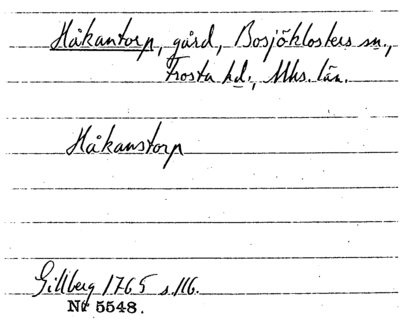 Håkantorp, gård, Bosjöklosters sn.,
Frosta hd., Mhs. län.
Håkanstorp
Gillberg 1765 s. 116.
Nr 5548.